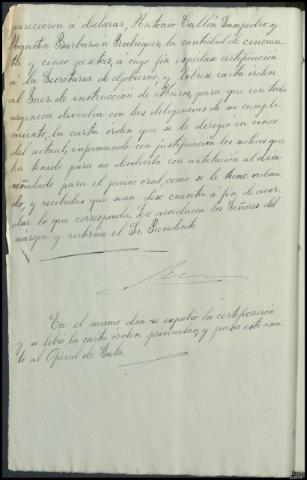 parecieron á declarar, Antonio Tallón Sampedro y
Agustin Barbazan Rodriguez, la cantidad de cincuen-
ta y cinco pesetas, a cuyo fin expidase certificación
á la Secretaria de Gobierno y librese carta orden
al Juez de instrucción de Muros, para que con toda
urgencia devuelva con las diligencias de su cumpli-
miento, la carta orden que se le dirigió en cinco
del actual, informando con justificación los motivos que
ha tenido para no devolverla con antelación al dia
señalado para el juicio oral, como se le tiene ordena-
do, y recibidas que sean dese cuenta á fin de acor-
dar lo que corresponda. Lo acordaron los Señores del
márgen y rubrica el Sr. Presidente
En el mismo dia se expidió la certificación
y se libró la carta orden prevenidas, y pasa este ano-
to al Oficial de Sala.